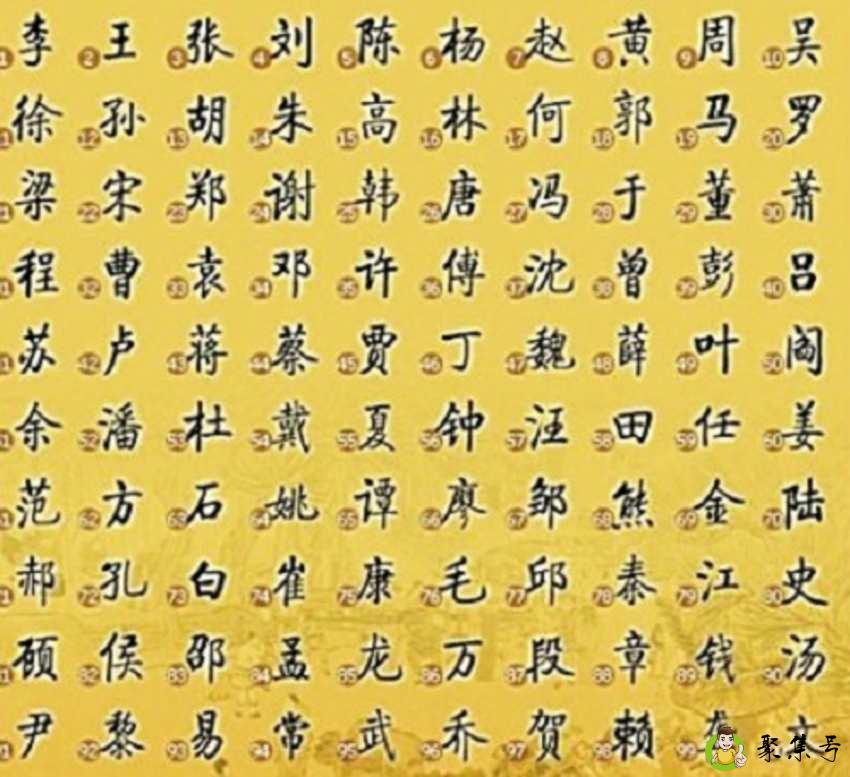 1李 2王 3张 4刘 5陈 6杨 7赵 8黄 9周 10吴
1徐 12孙 13胡 14朱 15高 16林 17何 18郭 19马 20罗
1梁 22宋 23郑 24谢 25韩 26唐 27冯 28于 29董 30萧
1程 32曹 33袁 34邓 35许 36傅 37沈 38曾 39彭 40吕
1苏 42卢 43蒋 44蔡 45贾 46丁 47魏 48薛 49叶 50阎
1余 52潘 53杜 54戴 55夏 56钟 57汪 58田 59任 60姜
1范 62方 63石 64姚 65谭 66廖 67邹 68熊 69金 70陆
1郝 72孔 73白 74崔 75康 76毛 77邱 78秦 79江 80史
1顾 82侯 83邵 84孟 85龙 86万 87段 88章 89钱 90汤
1尹 92黎 93易 94常 95武 96乔 97贺 98赖 99
聚集号